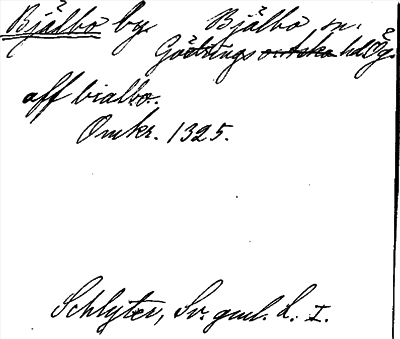 Bjälbo by. Bjälbo sn.
Göstrings hd Ög.
aff bialbo.
Omkr. 1325.
Schlyter, Sv. gml. L. I.